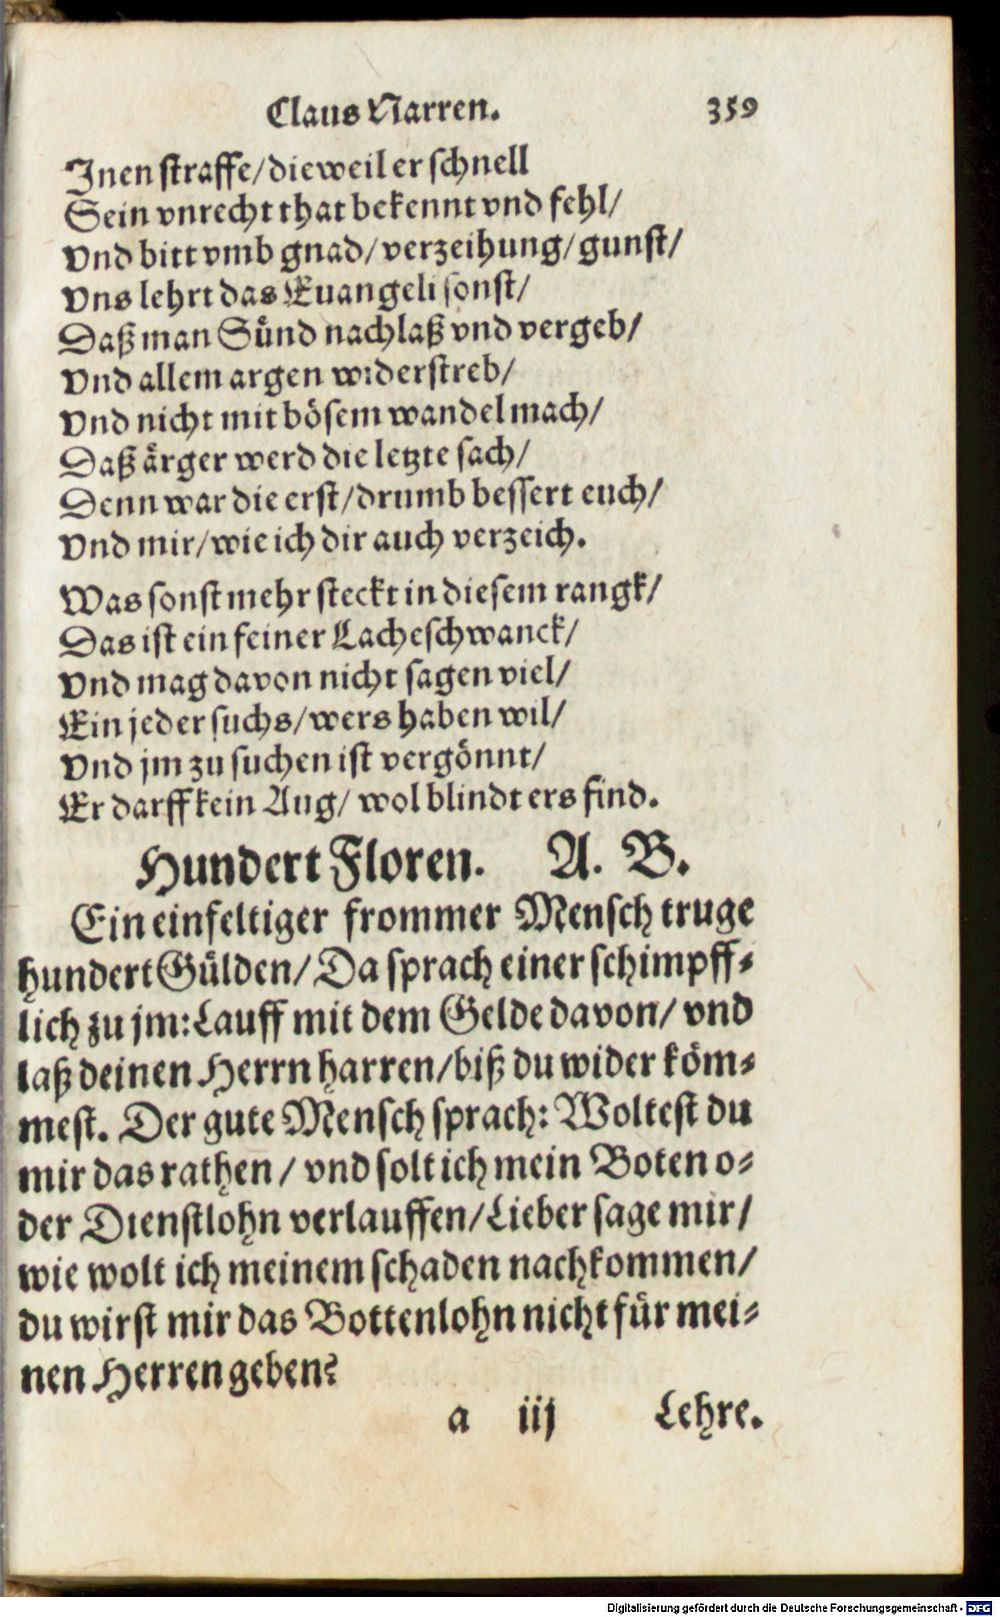 Claus Narren. 359
Jnen straffe/ dieweil er schnell
Sein vnrecht that bekennt vnd fehl/
Vnd bitt vmb gnad/ verzeihung/ gunst/
Vns lehrt das Euangeli sonst/
Daß man Sünd nachlaß vnd vergeb/
Vnd allem argen widerstreb/
Vnd nicht mit bösem wandel mach/
Daß ärger werd die letzte sach/
Denn war die erst/ drumb bessert euch/
Vnd mir/ wie ich dir auch verzeich.
Was sonst mehr steckt in diesem rangk/
Das ist ein feiner Lacheschwanck/
Vnd mag davon nicht sagen viel/
Ein jeder suchs/ wers haben wil/
Vnd jm zu suchen ist vergönnt/
Er darff kein Aug/ wol blindt ers find.
Hundert Floren. A. B.
Ein einfeltiger frommer Mensch truge
hundert Gülden/ Da sprach einer schimpff-
lich zu jm: Lauff mit dem Gelde davon/ vnd
laß deinen Herrn harren/ biß du wider köm-
mest. Der gute Mensch sprach: Woltest du
mir das rathen/ vnd solt ich mein Boten o-
der Dienstlohn verlauffen/ Lieber sage mir/
wie wolt ich meinem schaden nachkommen/
du wirst mir das Bottenlohn nicht für mei-
nen Herren geben?
a iij Lehre.
Digitalisierung gefördert durch die Deutsche Forschungsgemeinschaft - DFG